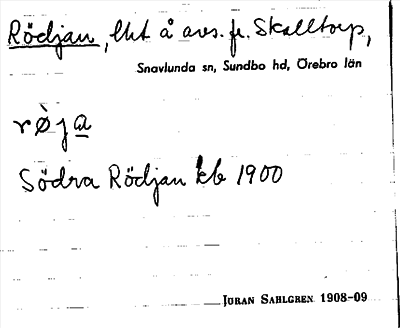 Rödjan, lht å avs. fr. Skalltorp,
Snavlunda sn, Sundbo hd, Örebro län
rø̀ja
Södra Rödjan kb 1900
JURAN SAHLGREN 1908-09